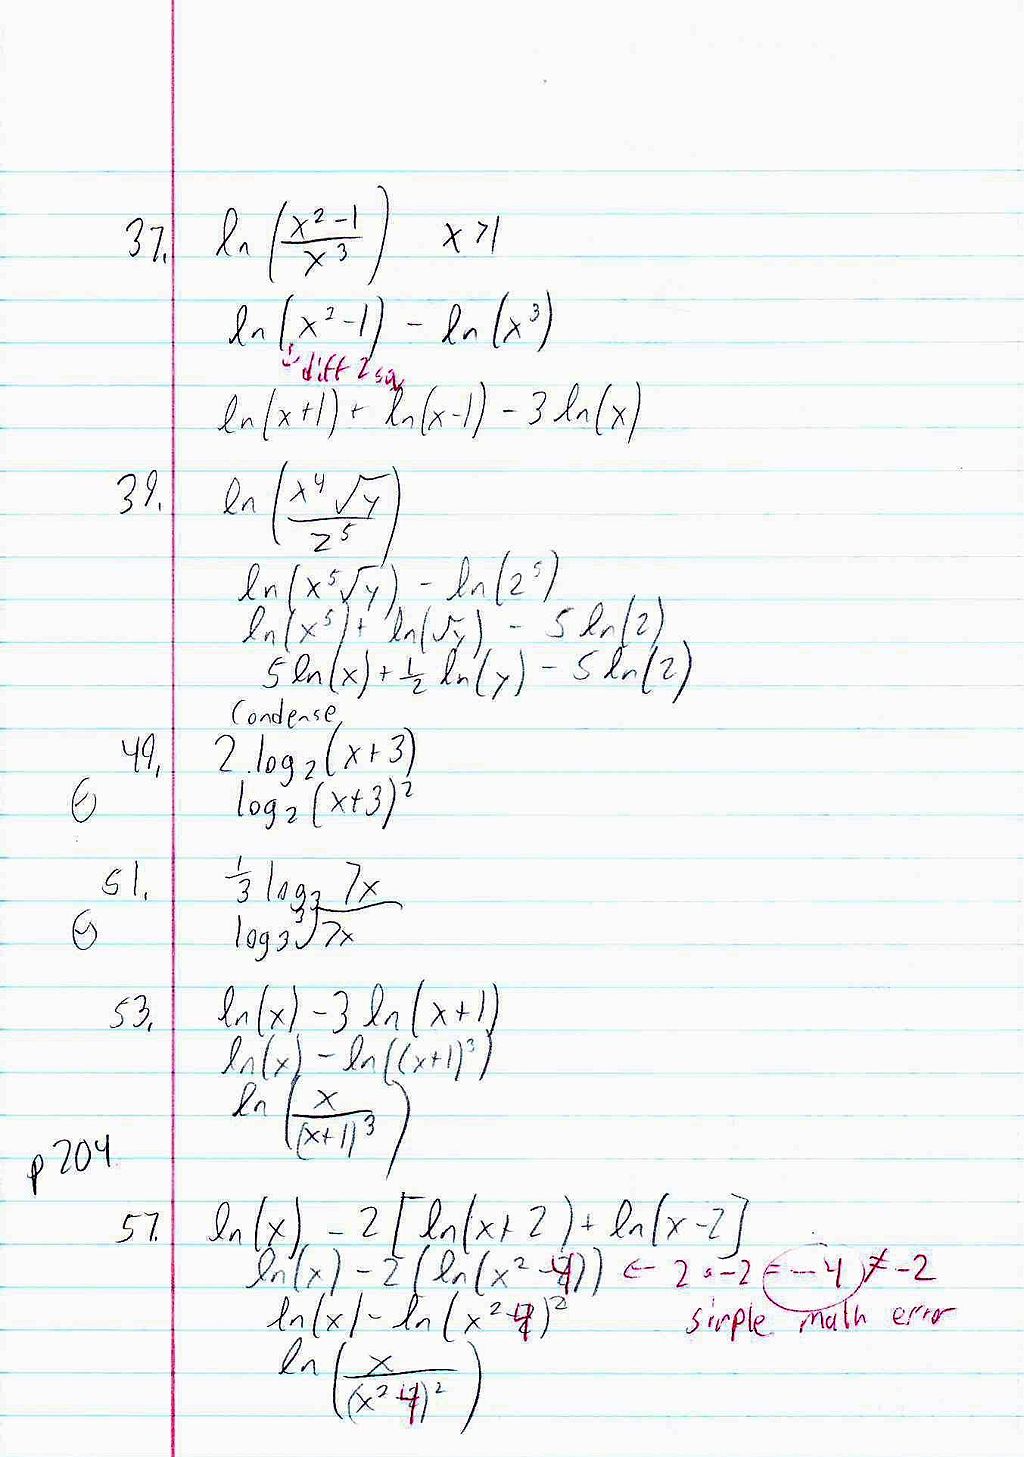 37. ln(x²-1/x³) x>1
ln(x²-1) - ln(x³)
diff 2 sq
ln(x+1) + ln(x-1) - 3 ln(x)
39. ln(x⁴√y/z⁵)
ln(x⁵√y) - ln(z⁵)
ln(x⁵) + ln(√y) - 5 ln(z)
5 ln(x) + ½ ln(y) - 5 ln(z)
Condense
49. 2·log₂(x+3)
log₂(x+3)²
51. ⅓ log₃ 7x
log₃ ³√7x
53. ln(x) - 3 ln(x+1)
ln(x) - ln((x+1)³)
ln(x/(x+1)³)
p204
57. ln(x) - 2[ln(x+2) + ln(x-2]
ln(x) - 2(ln(x²-4)) ← 2·-2 = -4 ≠ -2
ln(x) - ln(x²-4)² simple math error
ln(x/(x²-4)²)